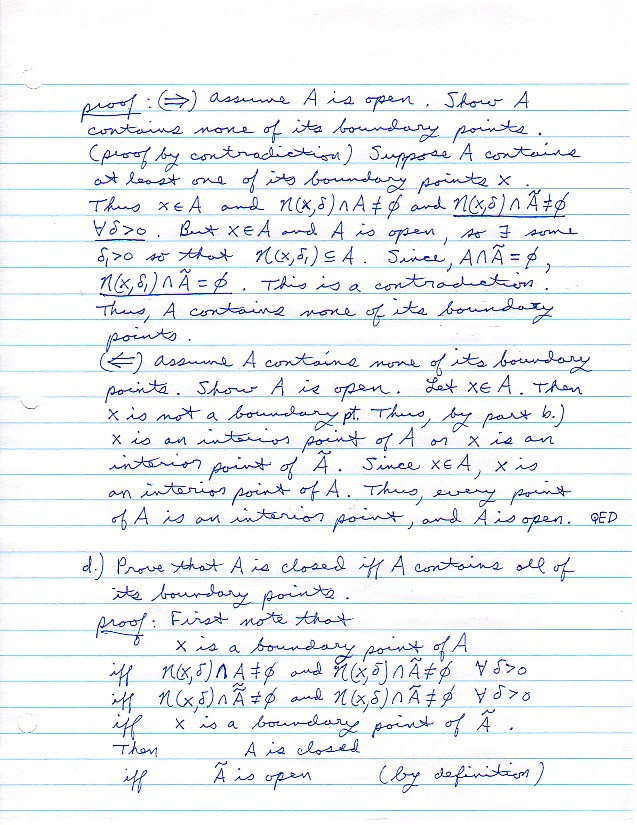 proof : (⇒) Assume A is open. Show A
contains none of its boundary points.
(proof by contradiction) Suppose A contains
at least one of its boundary points x.
Thus x∈A and N(x,δ)∩A≠ϕ and N(x,δ)∩Ã≠ϕ
∀δ>0. But x∈A and A is open, so ∃ some
δ₁>0 so that N(x,δ₁)⊆A. Since, A∩Ã=ϕ,
N(x,δ₁)∩Ã=ϕ. This is a contradiction.
Thus, A contains none of its boundary
points.
(⇐) Assume A contains none of its boundary
points. Show A is open. Let x∈A. Then
x is not a boundary pt. Thus, by part b.)
x is an interior point of A or x is an
interior point of Ã. Since x∈A, x is
an interior point of A. Thus, every point
of A is an interior point, and A is open. QED
d.) Prove that A is closed iff A contains all of
its boundary points.
proof: First note that
x is a boundary point of A
iff N(x,δ)∩A≠ϕ and N(x,δ)∩Ã≠ϕ ∀δ>0
iff N(x,δ)∩Ã̃≠ϕ and N(x,δ)∩Ã≠ϕ ∀δ>0
iff x is a boundary point of Ã.
Then A is closed
iff Ã is open (by definition)